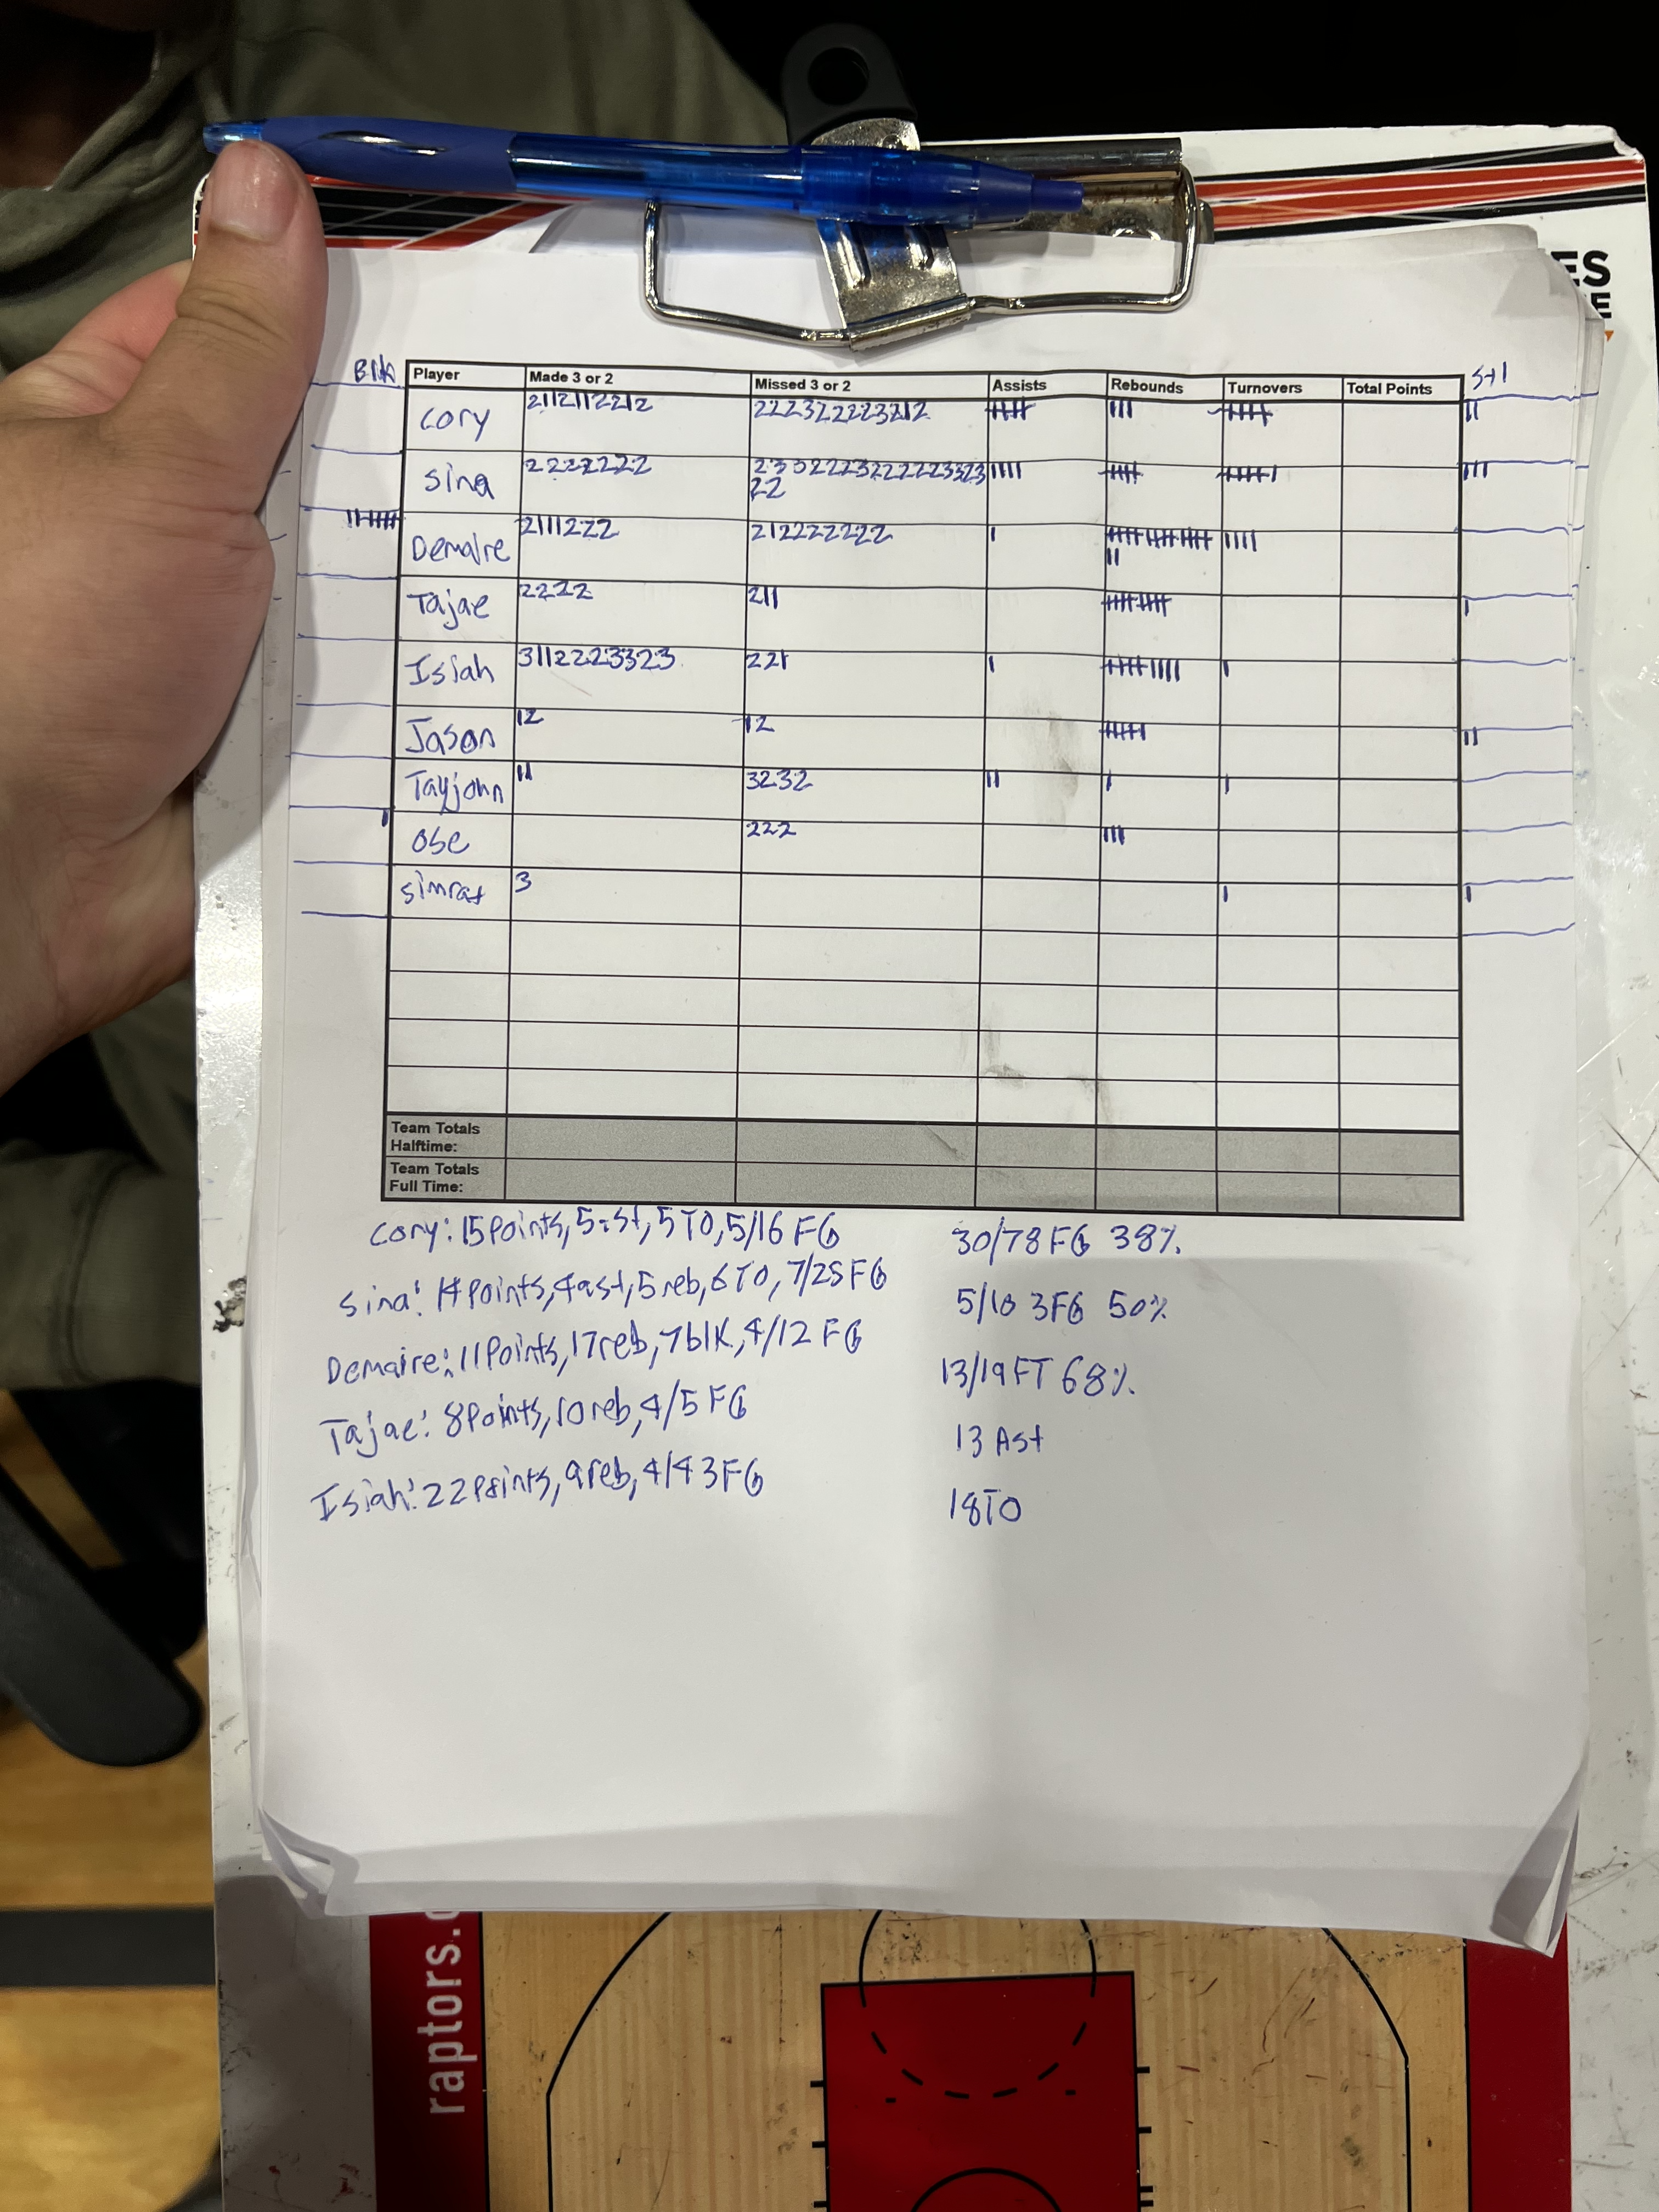 ES
Blk Player Made 3 or 2 Missed 3 or 2 Assists Rebounds Turnovers Total Points Stl
Cory 2112112212 222322223212
Sina 2222222
22
Demaire 2111222 212222222
Tajae 2222 211
Isiah 3112223323 221
Jason 12 12
Tayjohn 11 3232
Ose 222
Simrat 3
Team Totals
Halftime:
Team Totals
Full Time:
Cory: 15 Points, 5 ast, 5 TO, 5/16 FG
Sina: 14 Points, 4 ast, 5 reb, 6 TO, 7/25 FG
Demaire: 11 Points, 17 reb, 7 blk, 4/12 FG
Tajae: 8 Points, 10 reb, 4/5 FG
Isiah: 22 Points, 9 reb, 4/4 3FG
30/78 FG 38%
5/10 3FG 50%
13/19 FT 68%
13 Ast
18 TO
raptors.